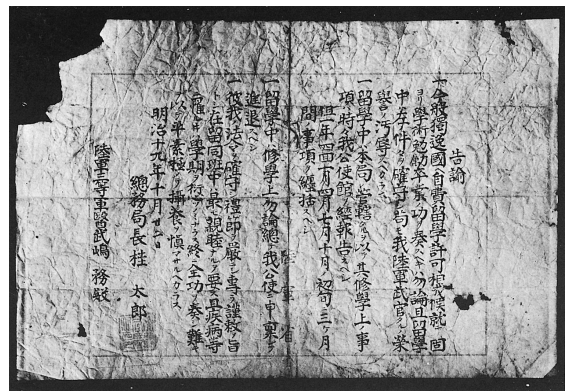 告諭
一今般獨逸國ヘ自費留學許可相成候ニ就テハ固
ヨリ學術勉勵卒業ノ功ヲ奏スヘキハ勿論且留學
中左ノ件々ヲ確守シ苟モ我陸軍武官タルノ榮
譽ヲ汚辱スヘカラス
一留學中ハ本局ノ管轄タルヲ以テ其修學上ノ事
項時々我公使館ヲ經報告スヘシ
但一年四回四月七月十月ノ初旬ニ三ヶ月
間ノ事項ヲ纏括スヘシ
一留學中ハ修學上ハ勿論總テ我公使ニ申禀シテ
進退スヘシ
一彼我ノ法令ヲ確守シ禮節ヲ嚴ニシ専ラ謹敕ヲ旨
トシ在留同班中ハ最モ親睦ナルヲ要ス且疾病等
ニ罹ル 學期ヲ 終ニ全功ヲ奏シ難キ
ヲ以テ平素 慎マサルヘカラス
明治十九年十月 日
總務局長桂太郎
陸軍 等軍醫武嶋務殿
陸軍省